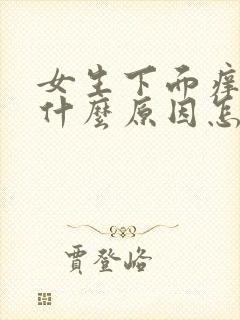 女生下面痒
什麼原因怎
賈登峪